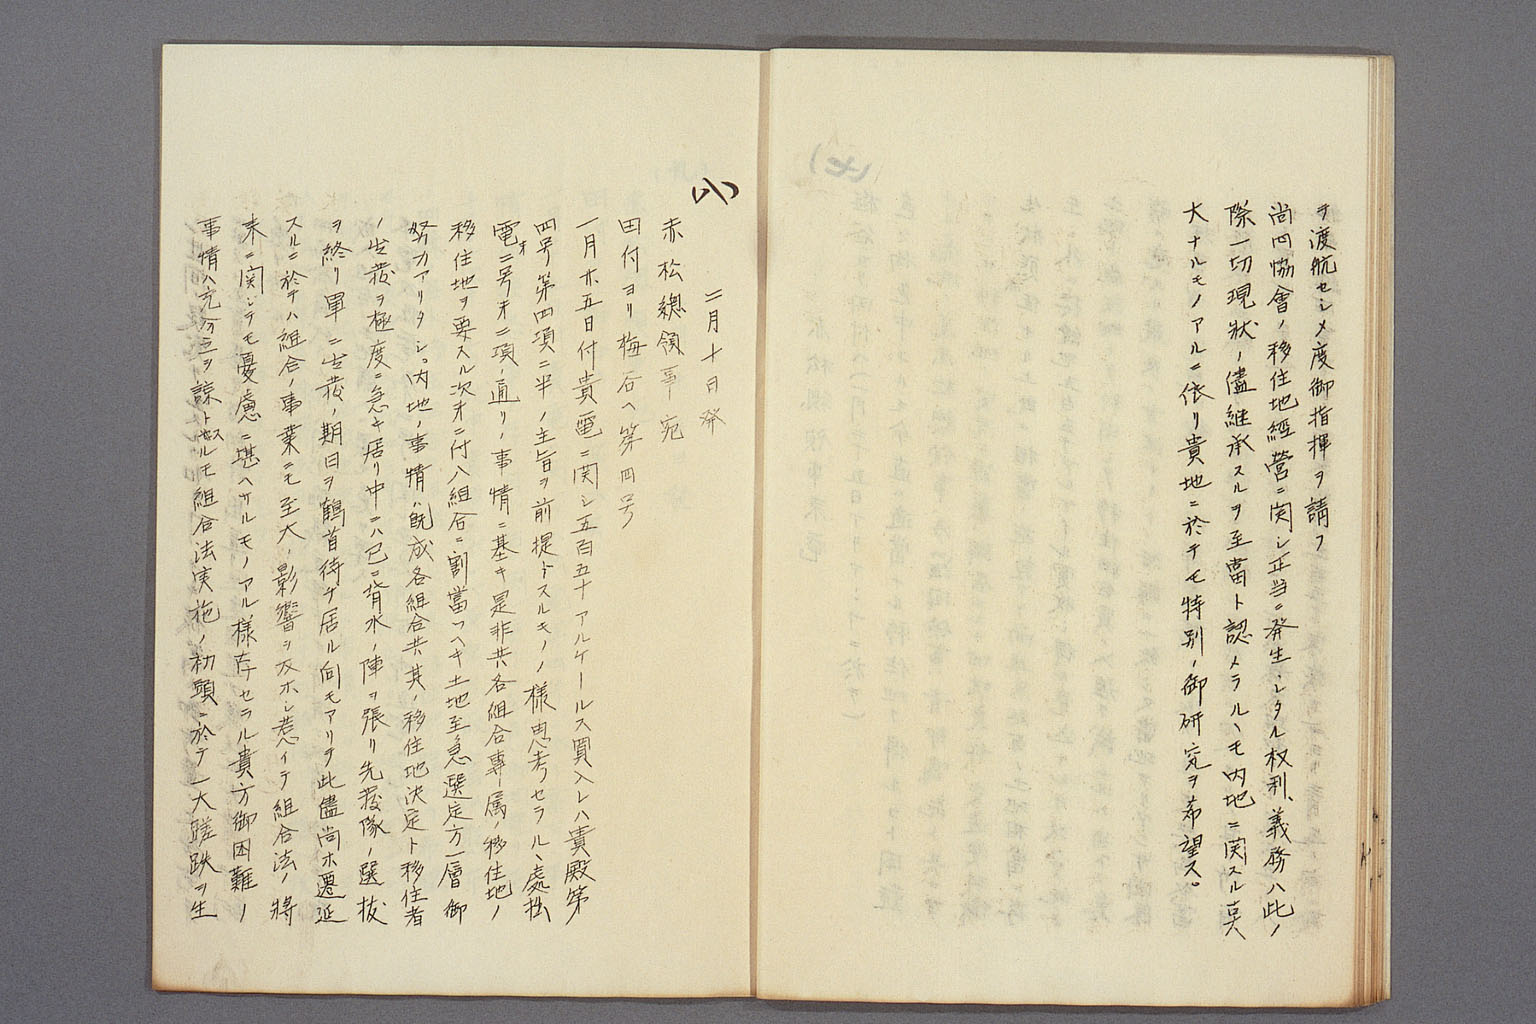 ヲ渡航セシメ度御指揮ヲ請フ
尚四協會ノ移住地經営ニ関シ正当ニ発生シタル权利、義務ハ此ノ
際一切現状ノ儘継承スルヲ至當ト認メラルヽモ内地ニ関スル莫
大ナルモノアルニ依リ貴地ニ於テモ特別ノ御研究ヲ希望ス。
(八)
二月十日発
赤松總領事宛
田付ヨリ梅谷ヘ第四号
一月廾五日付貴電ニ関シ五百五十アルケールス買入レハ貴殿第
四号第四項ニ半ノ主旨ヲ前提トスルモノノ様思考セラルヽ處拙
電オ二号オ二項ノ通リノ事情ニ基キ是非共各組合専属ノ移住地ノ
移住地ヲ要スル次オニ付八組合ニ割當ツヘキ土地至急選定方一層御
努力アリタシ。内地ノ事情ハ既成各組合共其ノ移住地決定ト移住者
ノ出発ヲ極度ニ急キ居リ中ニハ已ニ背水ノ陣ヲ張リ先発隊ノ選抜
ヲ終リ單ニ出発ノ期日ヲ鶴首待チ居ル向モアリテ此儘尚ホ遷延
スルニ於テハ組合ノ事業ニモ至大ノ影響ヲ及ホシ惹イテ組合法ノ將
来ニ関シテモ憂慮ニ堪ヘサルモノアル様存セラル貴方御困難ノ
事情ハ充分之ヲ諒トスルモ組合法実施ノ初頭ニ於テ一大蹉跌ヲ生